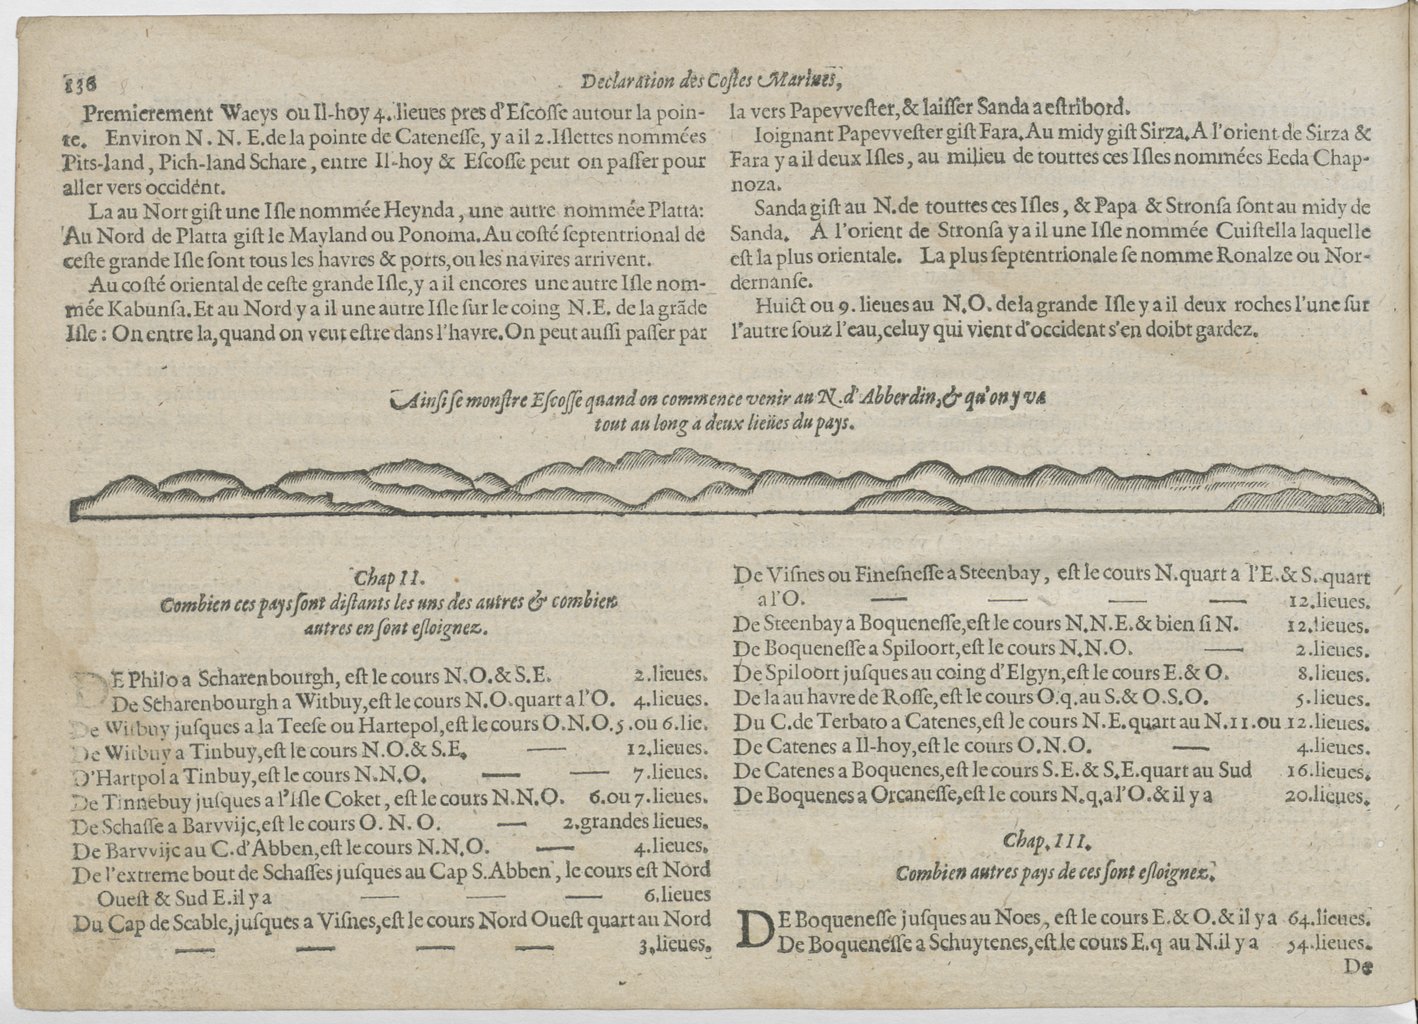 136
Declaration des Costes Marines,
Premierement Waeys ou Il-hoy 4. lieues pres d'Escosse autour la poin-
te. Environ N. N. E. de la pointe de Catenesse, y a il 2. Islettes nommées
Pits-land, Pich-land Schare, entre Il-hoy & Escosse peut on passer pour
aller vers occident.
La au Nort gist une Isle nommée Heynda, une autre nommée Platta:
Au Nord de Platta gist le Mayland ou Ponoma. Au costé septentrional de
ceste grande Isle sont tous les havres & ports, ou les navires arrivent.
Au costé oriental de ceste grande Isle, y a il encores une autre Isle nom-
mée Kabunsa. Et au Nord y a il une autre Isle sur le coing N.E. de la grãde
Isle: On entre la, quand on veut estre dans l'havre. On peut aussi passer par
la vers Papevvester, & laisser Sanda a estribord.
Ioignant Papevvester gist Fara. Au midy gist Sirza. A l'orient de Sirza &
Fara y a il deux Isles, au milieu de touttes ces Isles nommées Eeda Chap-
noza.
Sanda gist au N. de touttes ces Isles, & Papa & Stronsa sont au midy de
Sanda. A l'orient de Stronsa y a il une Isle nommée Cuistella laquelle
est la plus orientale. La plus septentrionale se nomme Ronalze ou Nor-
dernanse.
Huict ou 9. lieues au N.O. de la grande Isle y a il deux roches l'une sur
l'autre souz l'eau, celuy qui vient d'occident s'en doibt gardez.
Ainsi se monstre Escosse quand on commence venir au N. d'Abberdin, & qu'on y va
tout au long a deux lieües du pays.
Chap II.
Combien ces pays sont distants les uns des autres & combien
autres en sont esloignez.
DE Philo a Scharenbourgh, est le cours N.O. & S.E. 2. lieues.
De Scharenbourgh a Witbuy, est le cours N.O. quart a l'O. 4. lieues.
De Witbuy jusques a la Teese ou Hartepol, est le cours O.N.O. 5. ou 6. lie.
De Witbuy a Tinbuy, est le cours N.O. & S.E. — 12. lieues.
D'Hartpol a Tinbuy, est le cours N.N.O. — — 7. lieues.
De Tinnebuy jusques a l'Isle Coket, est le cours N.N.O. 6. ou 7. lieues.
De Schasse a Barvvijc, est le cours O. N. O. — 2. grandes lieues.
De Barvvijc au C. d'Abben, est le cours N.N.O. — 4. lieues.
De l'extreme bout de Schasses jusques au Cap S. Abben, le cours est Nord
Ouest & Sud E. il y a — — — 6. lieues
Du Cap de Scable, jusques a Visnes, est le cours Nord Ouest quart au Nord
— — — — 3. lieues.
De Visnes ou Finesnesse a Steenbay, est le cours N. quart a l'E. & S. quart
a l'O. — — — — 12. lieues.
De Steenbay a Boquenesse, est le cours N.N.E. & bien si N. 12. lieues.
De Boquenesse a Spiloort, est le cours N.N.O. — 2. lieues.
De Spiloort jusques au coing d'Elgyn, est le cours E. & O. 8. lieues.
De la au havre de Rosse, est le cours O. q. au S. & O.S.O. 5. lieues.
Du C. de Terbato a Catenes, est le cours N.E. quart au N. 11. ou 12. lieues.
De Catenes a Il-hoy, est le cours O.N.O. — 4. lieues.
De Catenes a Boquenes, est le cours S.E. & S.E. quart au Sud 16. lieues.
De Boquenes a Orcanesse, est le cours N. q. a l'O. & il y a 20. lieues.
Chap. III.
Combien autres pays de ces sont esloignez.
DE Boquenesse jusques au Noes, est le cours E. & O. & il y a 64. lieues.
De Boquenesse a Schuytenes, est le cours E. q au N. il y a 54. lieues.
De